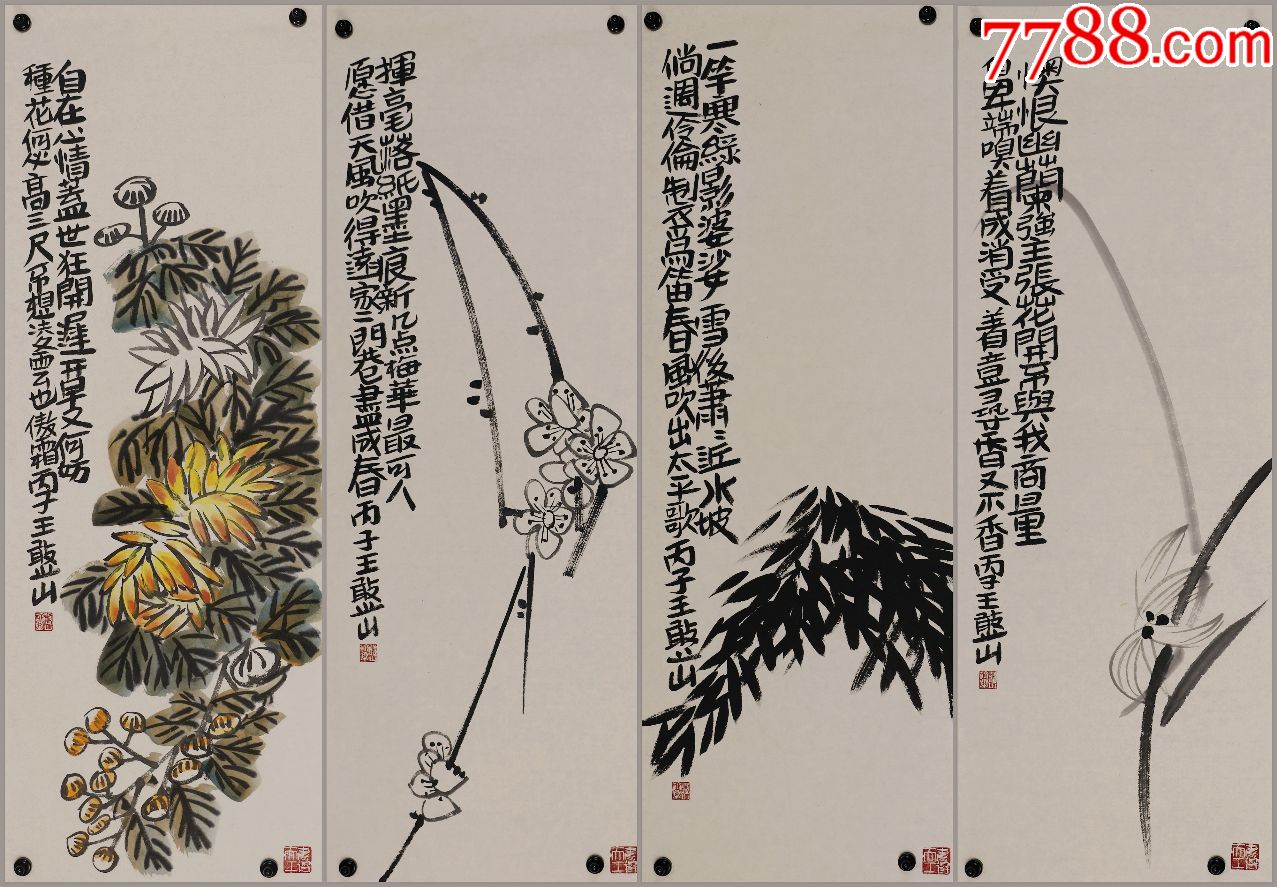 7788.com
自在心情蓋世狂開遲開早又何妨
種花何必高三尺不想凌雲也傲霜丙子王憨山
揮毫落紙墨痕新几点梅華最可人
愿借天風吹得遠家二門巷盡成春丙子王憨山
一竿寒綠影婆娑雪後肅二近水坡
倘遇伶倫制爲笛春風吹出太平歌丙子王憨山
懊恨幽蘭強主張花開不與我商量
鼻端嗅着成消受着意尋香又不香丙子王憨山